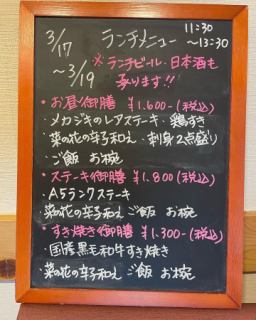 3/17 ランチメニュー 11:30
～3/19 ～13:30
※ランチビール・日本酒も
承ります!!
・お昼御膳 ¥1.600-(税込)
・メカジキのレアステーキ・鶏すき
・菜の花の辛子和え・刺身2点盛り
・ご飯 お椀
・ステーキ御膳 ¥1.800(税込)
・A5ランクステーキ
・菜の花の辛子和え ご飯 お椀
・すき焼き御膳 ¥1.300-(税込)
・国産黒毛和牛すき焼き
・菜の花の辛子和え ご飯 お椀